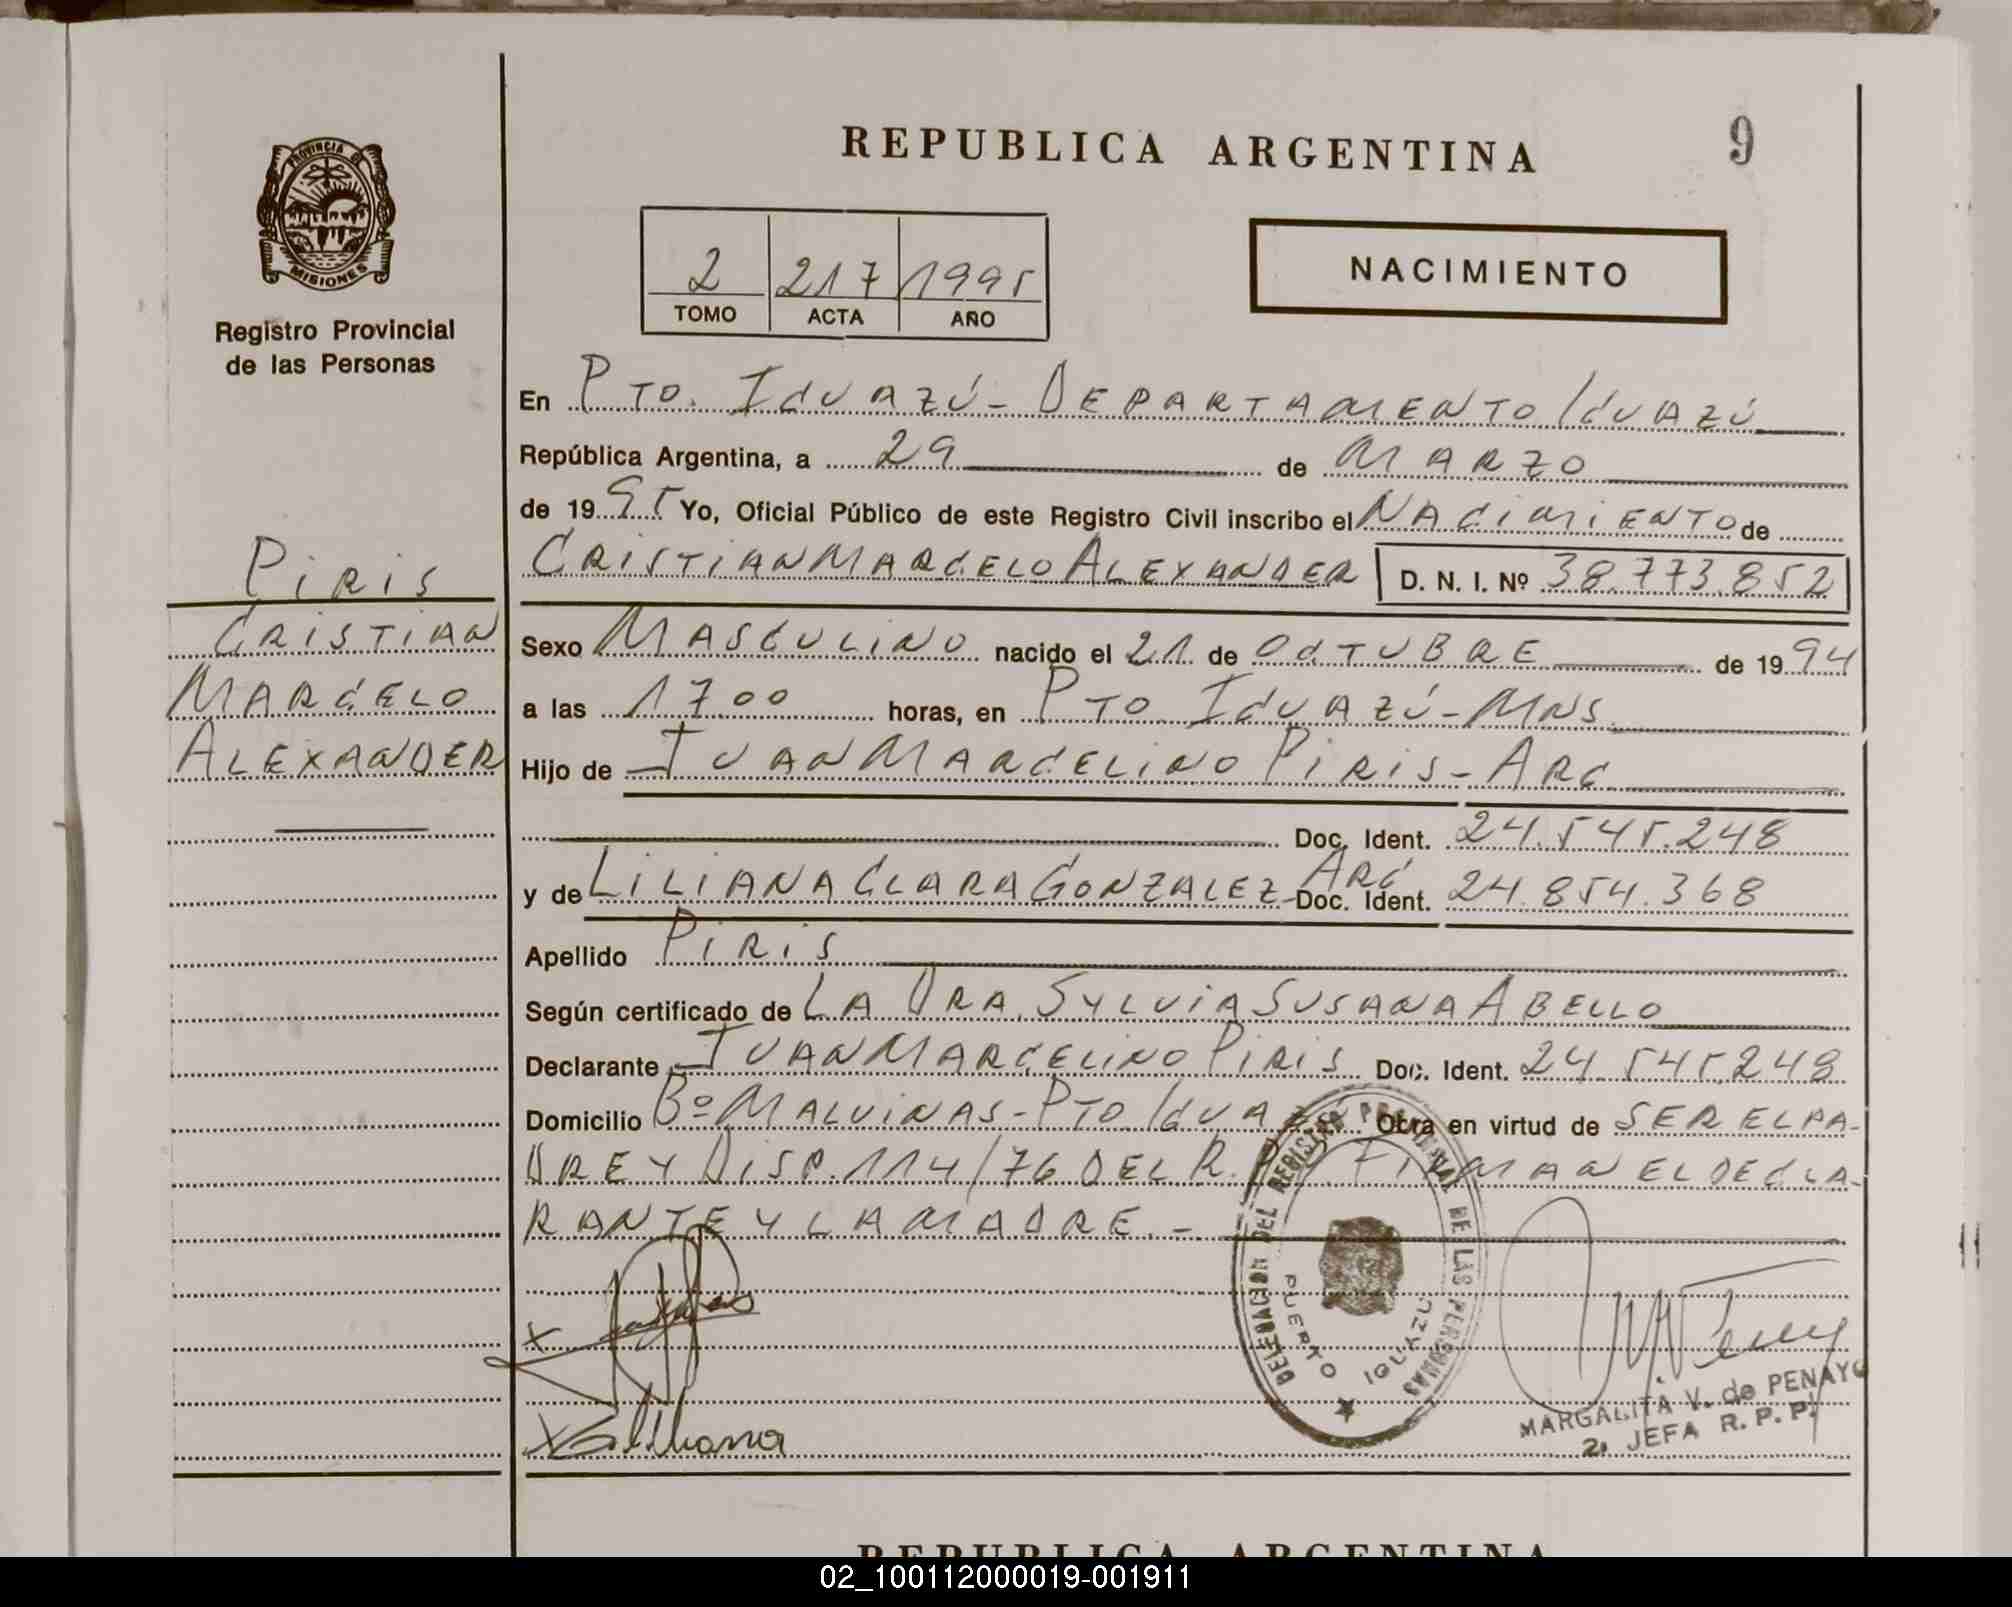 REPUBLICA ARGENTINA
9
PROVINCIA DE
MISIONES
Registro Provincial
de las Personas
2 217 1995
TOMO ACTA AÑO
NACIMIENTO
En PTO. IGUAZÚ - DEPARTAMENTO IGUAZÚ
República Argentina, a 29 de MARZO
de 1995 Yo, Oficial Público de este Registro Civil inscribo el NACIMIENTO de
CRISTIAN MARCELO ALEXANDER D. N. I. Nº 38.773.852
PIRIS
CRISTIAN
MARCELO
ALEXANDER
Sexo MASCULINO nacido el 21 de OCTUBRE de 1994
a las 17.00 horas, en PTO. IGUAZÚ - MNS.
Hijo de JUAN MARCELINO PIRIS - ARG.
Doc. Ident. 24.545.248
y de LILIANA CLARA GONZALEZ - ARG. Doc. Ident. 24.854.368
Apellido PIRIS
Según certificado de LA DRA. SYLVIA SUSANA ABELLO
Declarante JUAN MARCELINO PIRIS Doc. Ident. 24.545.248
Domicilio Bº MALVINAS - PTO. IGUAZÚ Obra en virtud de SER EL PA-
DRE Y DISP. 114/76 DEL R. P. P. FIRMAN EL DECLA-
RANTE Y LA MADRE. -
DELEGACION DEL REGISTRO PROVINCIAL DE LAS PERSONAS
PUERTO IGUAZU
X
X Liliana
MARGALITA V. de PENAYO
2ª JEFA R. P. P.
REPUBLICA ARGENTINA
02_100112000019-001911